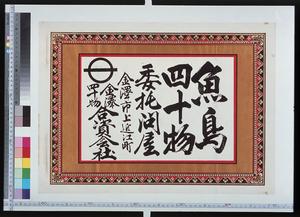 魚鳥
四十物
委托問屋
金澤市上近江町
金澤
四十物
合資会社